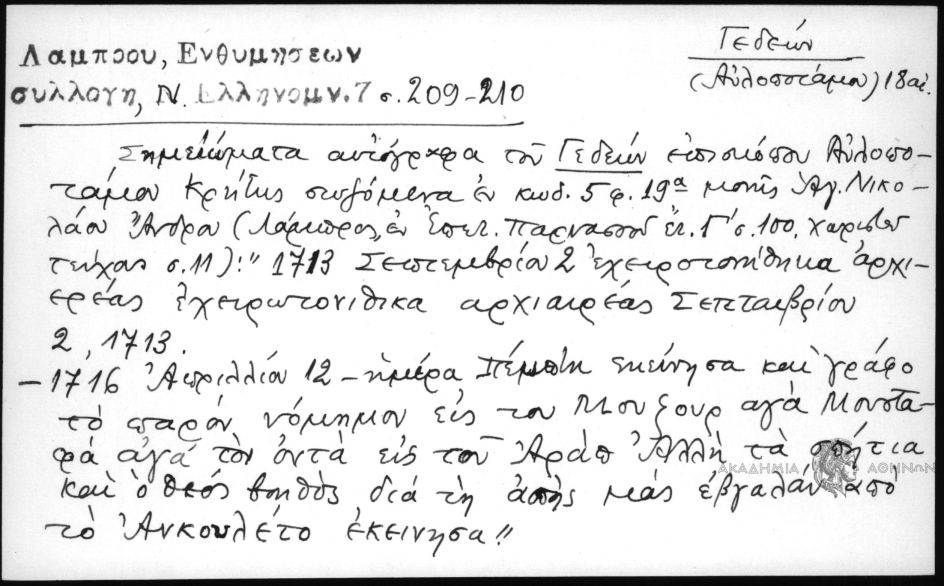 Λαμπρου, Ενθυμησεων
συλλογη, Ν. Ελληνομν. 7 σ. 209-210
Γεδεών
(Αὐλοποτάμου) 18 αἰ.
Σημειώματα αὐτόγραφα τοῦ Γεδεών ἐπισκόπου Αὐλοπο-
τάμου Κρήτης σωζόμενα ἐν κωδ. 5 φ. 19α μονῆς Ἁγ. Νικο-
λάου Ἄνδρου (Λάμπρος, ἐν Ἐπετ. Παρνασσοῦ ἔτ. Γ' σ. 100,
τεύχος σ. 11): " 1713 Σεπτεμβρίου 2 ἐχειροτονήθηκα ἀρχι-
ερέας ἐχειρωτονιθικα αρχιαιρέας Σεπταιβρίου
2, 1713.
- 1716 Ἀπριλλίου 12 - ἡμέρα Πέμπτη εκείνησα και γράφο
τὸ παρόν νόμημον εἰς τον Μουξουρ αγὰ Μουστα-
φά ἀγά τὸν ὀντὰ εἰς τοῦ Ἀράπ Ἀλλῆ τὰ σπήτια
καὶ ὁ θεός βοηθὸς διά τὴ μάς έβγαλαν ἀπό
τὸ Ἀνκουλέτο ἐκεινησα "
ΑΚΑΔΗΜΙΑ ΑΘΗΝΩΝ